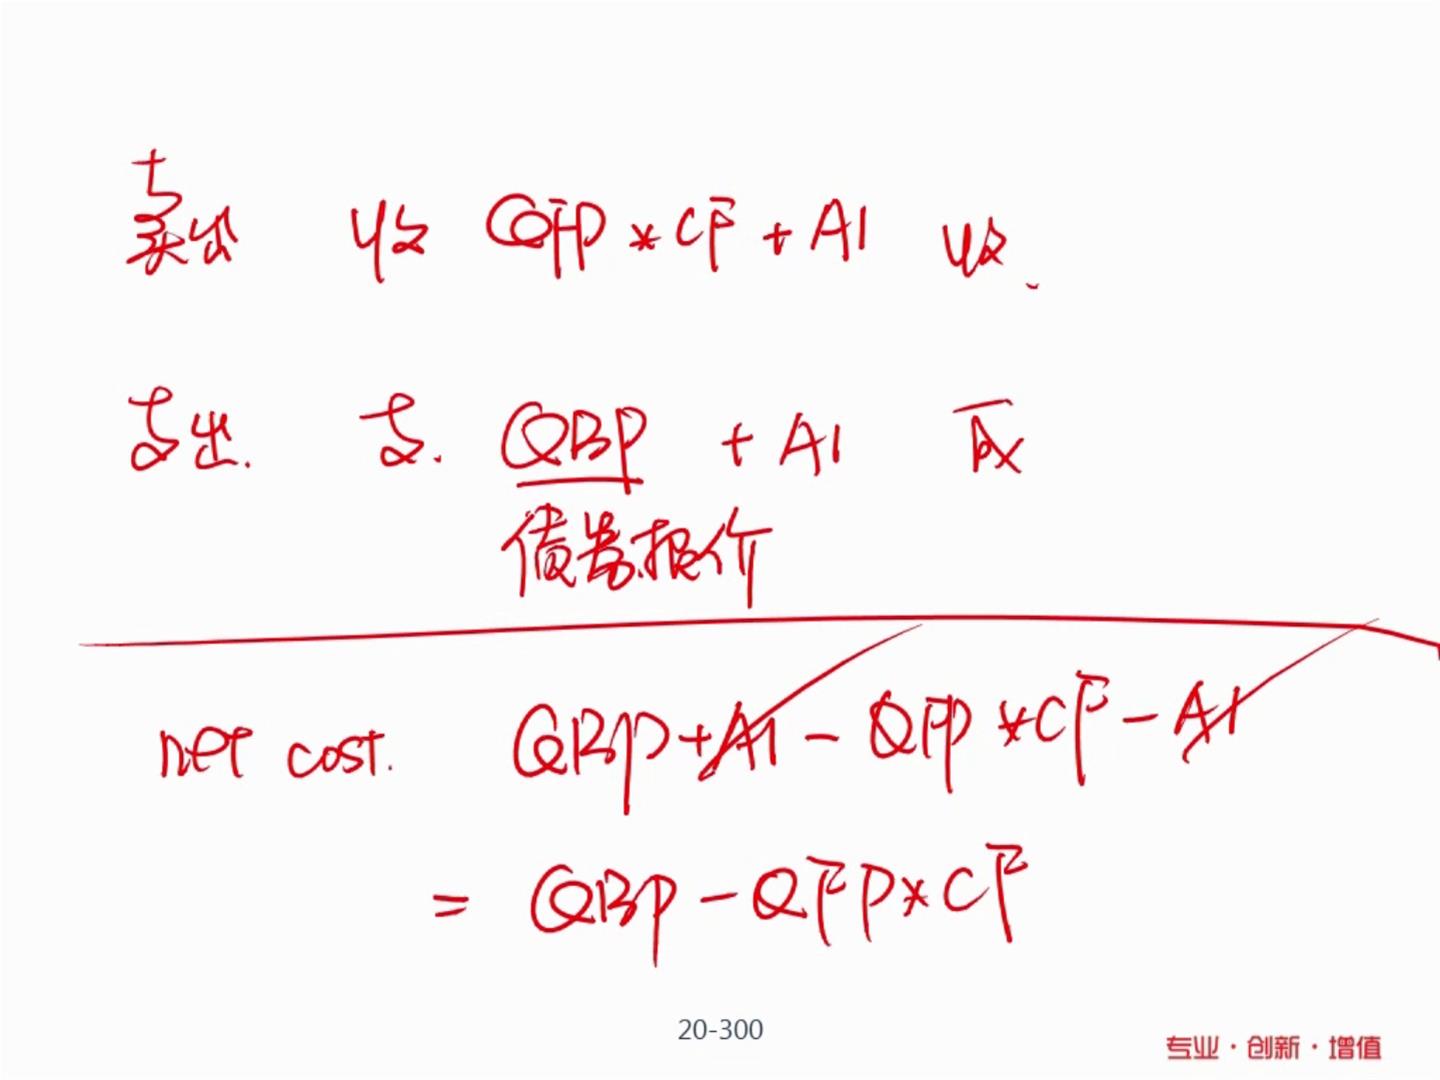 卖出 收 QFP * CF + AI 收.
支出. 支. QBP + AI
债券报价
net cost. QBP + AI - QFP * CF - AI
= QBP - QFP * CF
20-300
专业·创新·增值